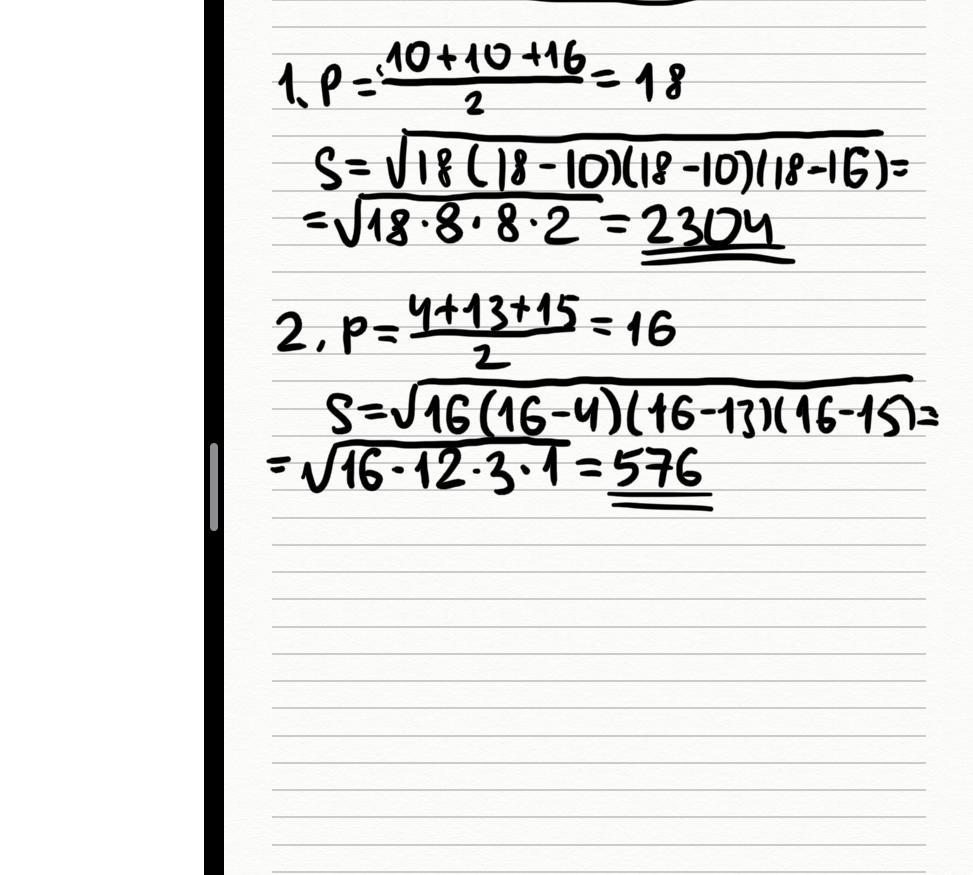 1. P = (10+10+16)/2 = 18
S = √(18(18-10)(18-10)(18-16)) =
= √(18·8·8·2) = 2304
2. P = (4+13+15)/2 = 16
S = √(16(16-4)(16-13)(16-15)) =
= √(16·12·3·1) = 576